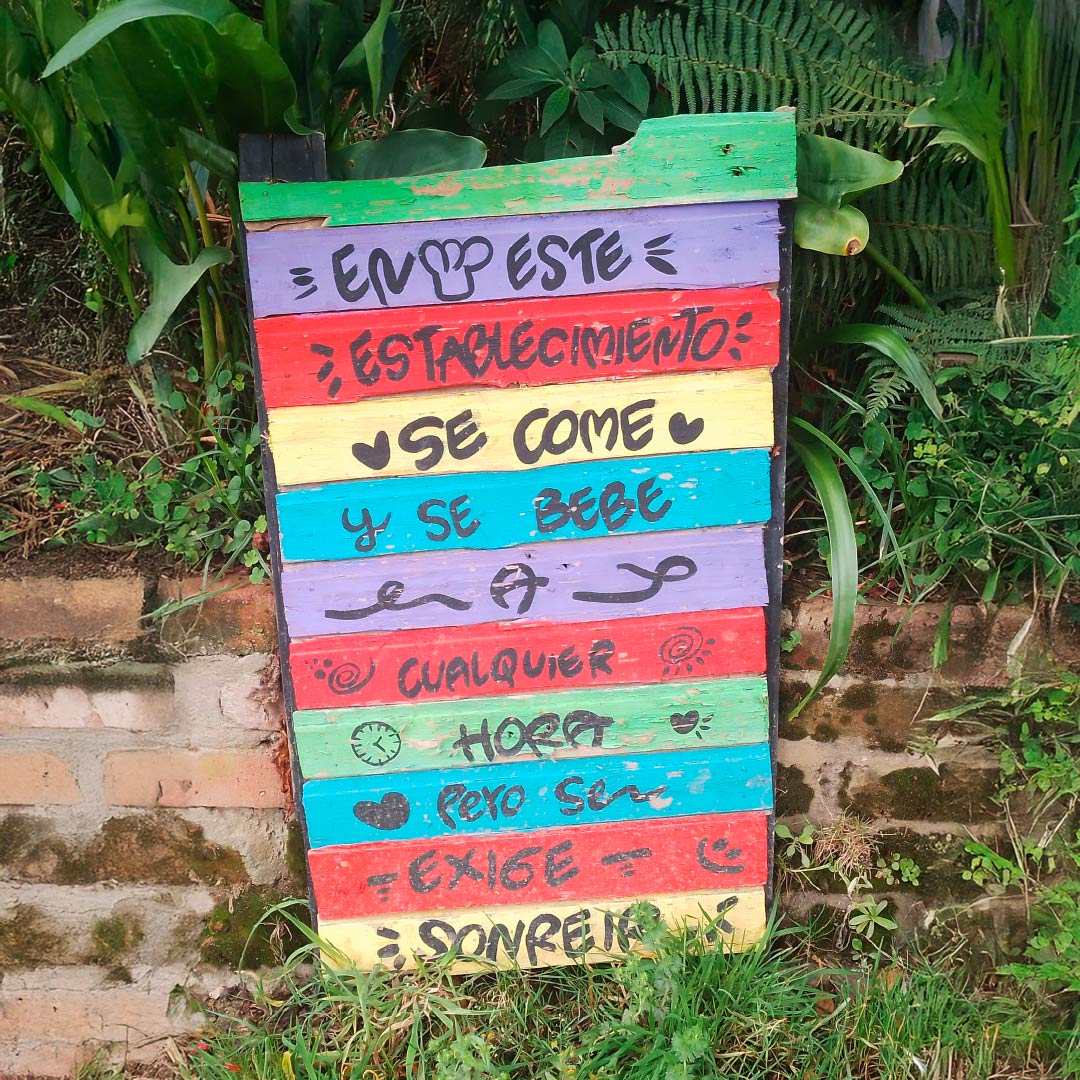 EN ESTE
ESTABLECIMIENTO
SE COME
Y SE BEBE
A
CUALQUIER
HORA
Pero Se
EXIGE
SONREIR